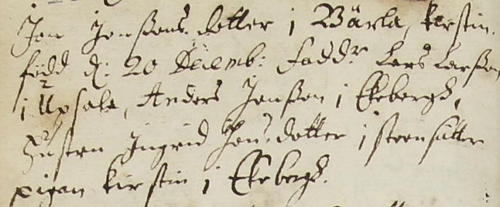 Jon Jonßons dotter i Bärla, kerstin.
född d: 20 Decemb: Fadd^r Lars Larßon
i Upsala, Anders Jonßon i Ekeberg,
Hustru Ingrid Jons dotter i steensätter
pigan kirstin i Ekeberg.